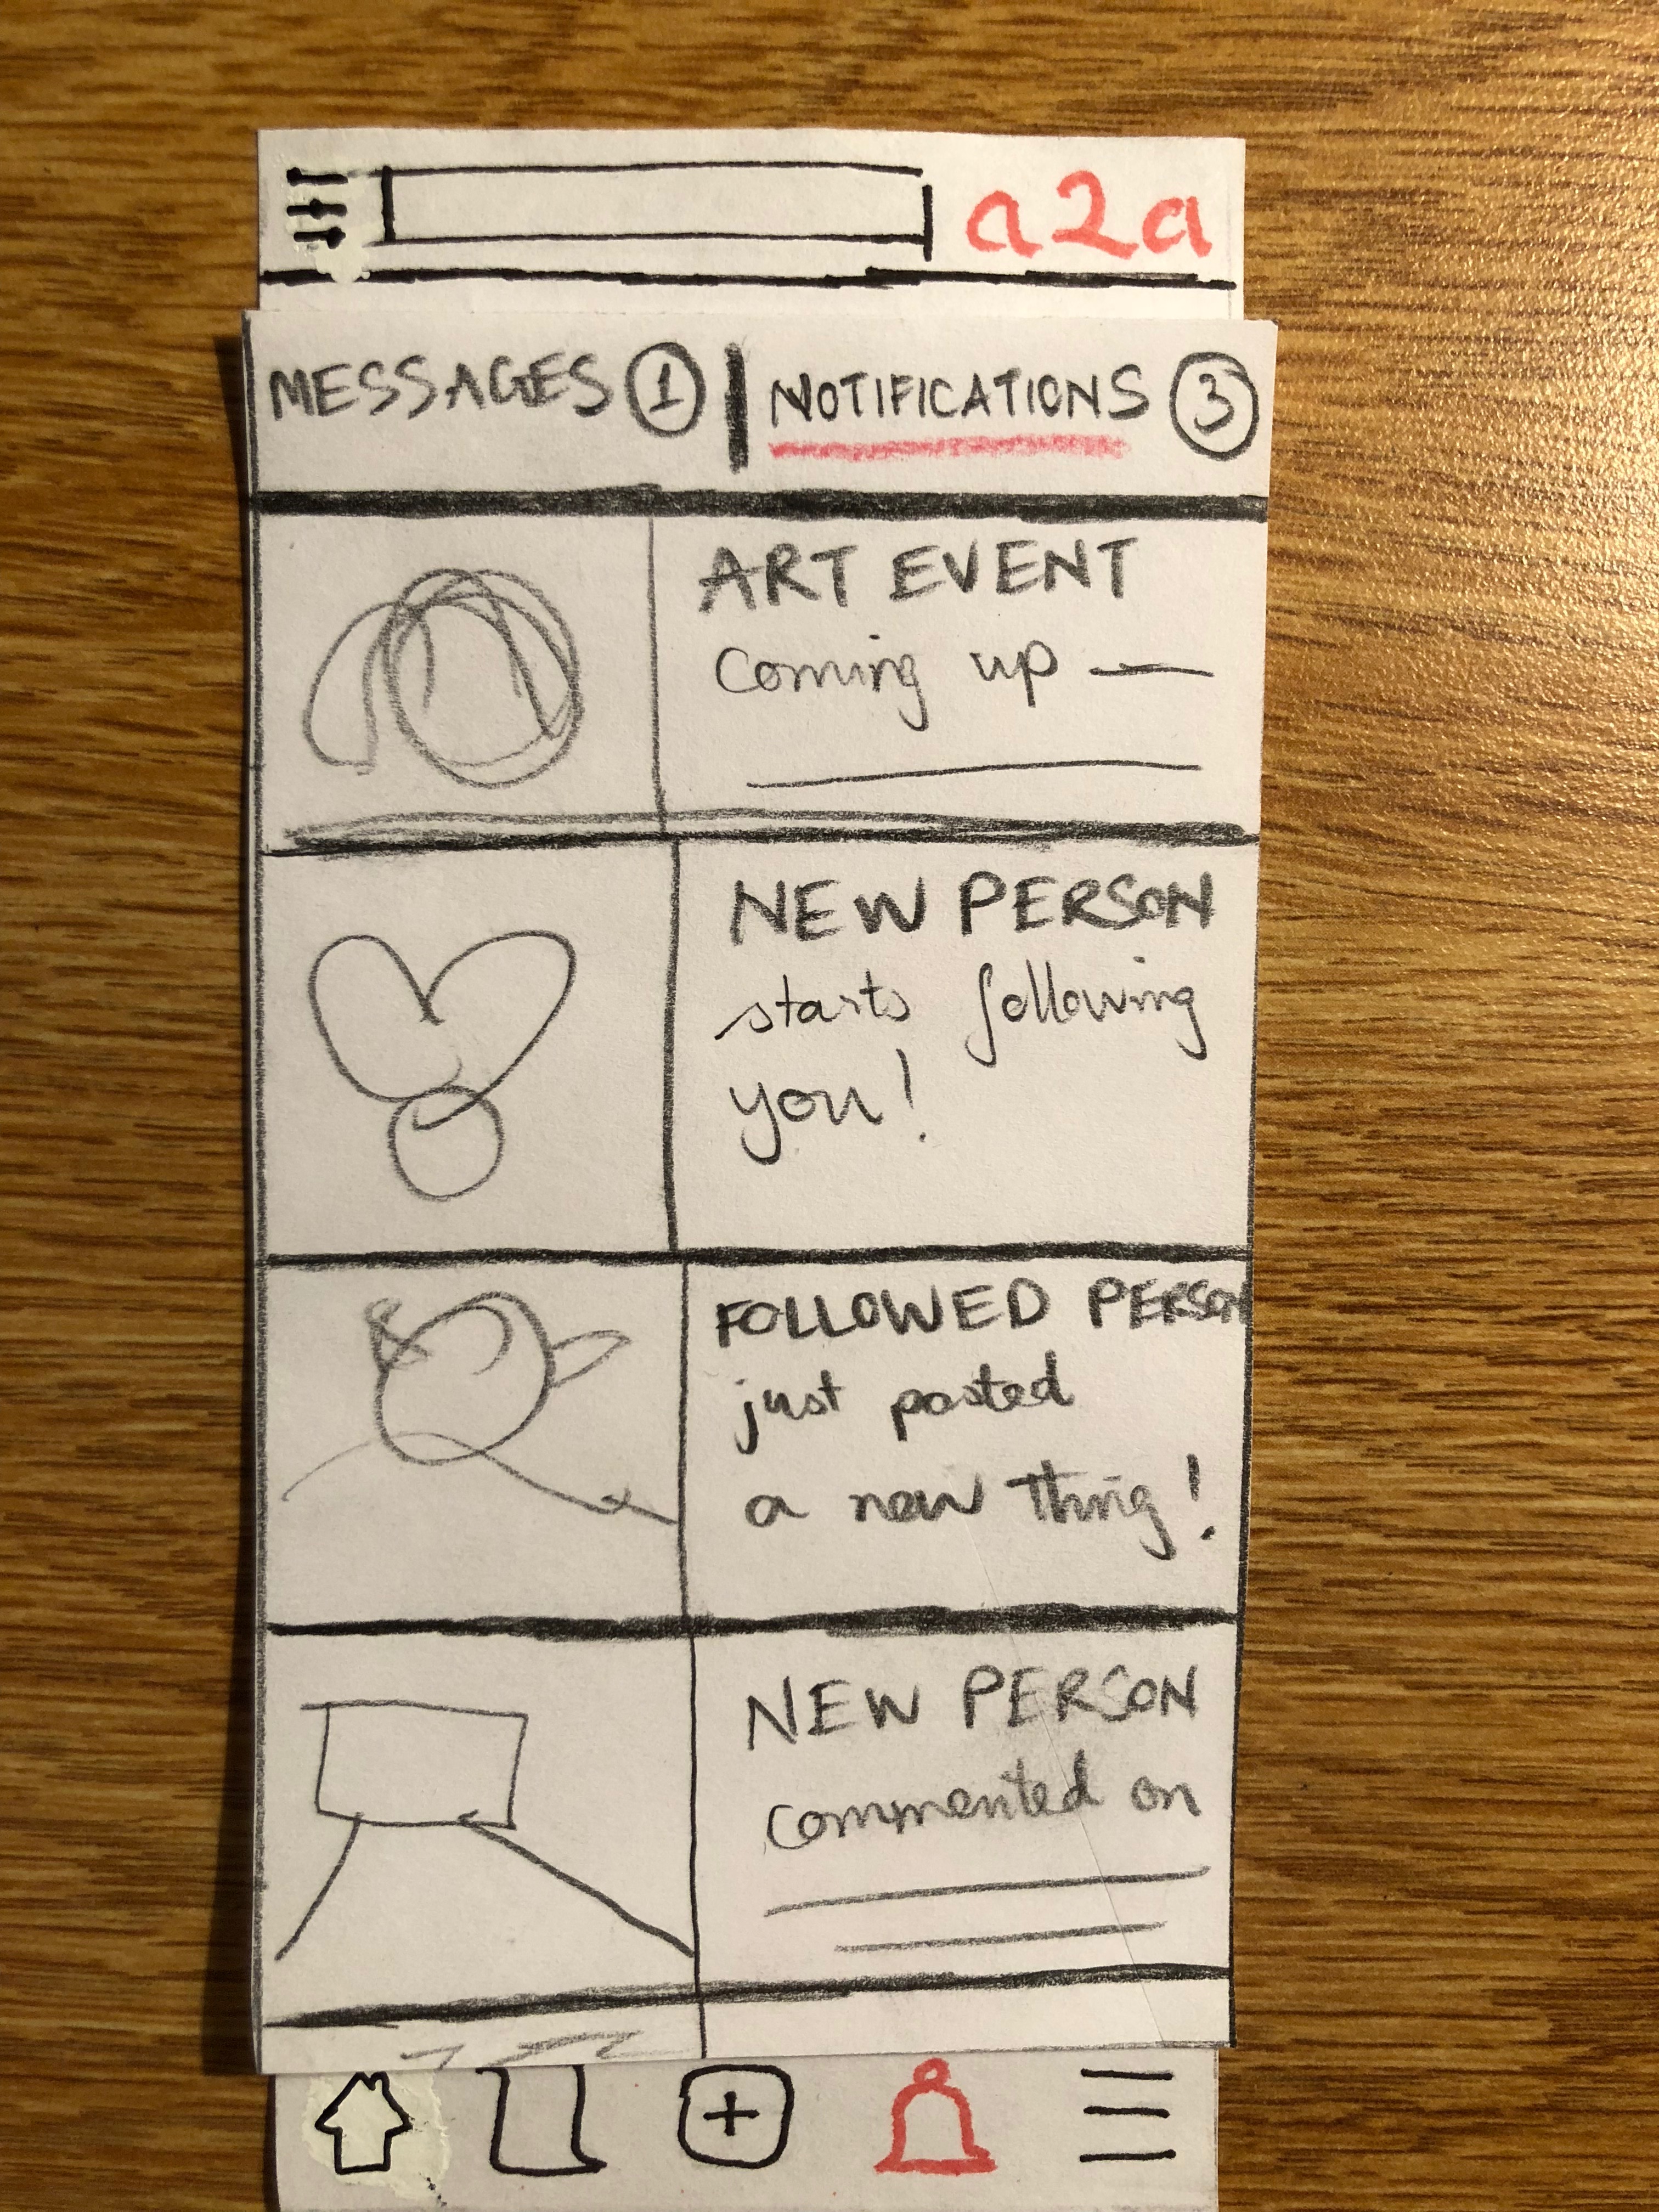 a2a
MESSAGES 1 | NOTIFICATIONS 3
ART EVENT
Coming up —
NEW PERSON
starts following
you!
FOLLOWED PERSON
just posted
a new thing!
NEW PERSON
commented on